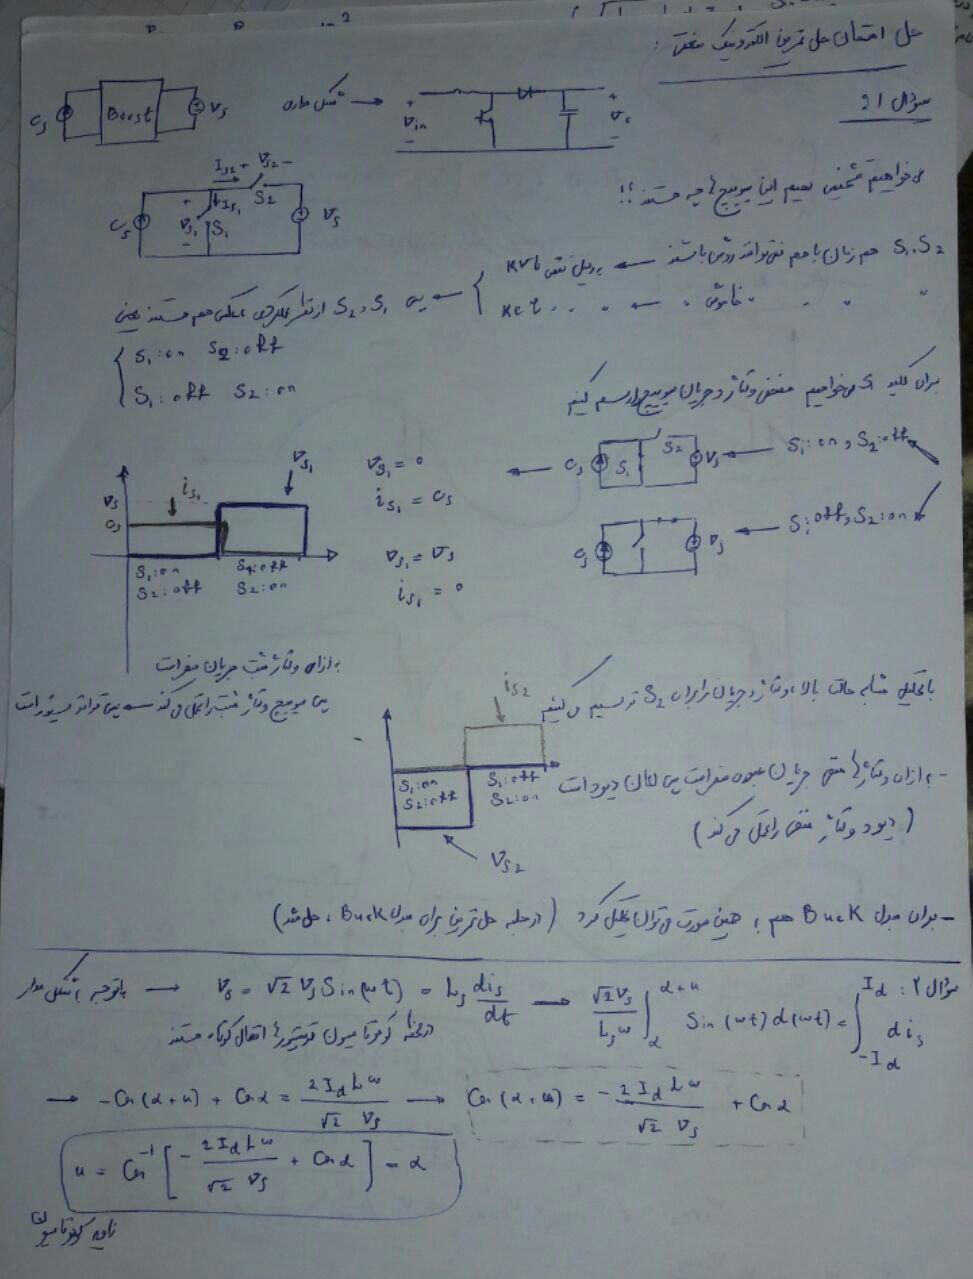 حل امتحان حل تمرین الکترونیک صنعتی :
سؤال 1)
Cs Boost Vs
شکل مداری → + Vin - + Vc -
Is2 + Vs2 -
Cs + Vs1 - Is1 S1 S2 Vs
می‌خواهیم مشخص کنیم این سوییچ‌ها چه هستند؟!
S1 , S2 هم زمان با هم نمی‌توانند روشن باشند ← به دلیل نقض KVL
" " " " خاموش " ← " " KCL
پس ← S1 و S2 از نظر عملکردی مکمل هم هستند یعنی
S1:on S2:off
S1:off S2:on
برای کلید S1 می‌خواهیم منحنی ولتاژ و جریان سوییچ را رسم کنیم
S1:on , S2:off → Cs S1 S2 Vs →
Vs1 = 0
is1 = Cs
S1:off , S2:on → Cs Vs
Vs1 = Vs
is1 = 0
Vs Cs is1 Vs1
S1:on S1:off
S2:off S2:on
به ازای ولتاژ مثبت جریان صفر است
پس سوییچ ولتاژ مثبت را تحمل می‌کند ← پس ترانزیستور است
با تحلیل مشابه حالت بالا، ولتاژ و جریان را برای S2 ترسیم می‌کنیم
is2
S1:on S1:off
S2:off S2:on
Vs2
- به ازای ولتاژهای منفی جریان عبوری صفر است پس المان دیود است
(دیود ولتاژ منفی را تحمل می‌کند)
- برای مبدل Buck هم به همین صورت می‌توان تحلیل کرد (در جلسه حل تمرین برای مبدل Buck ، حل شد)
سؤال ۲ :
باتوجه به شکل مدار → Vs = √2 Vs Sin(ωt) = Ls dis/dt → √2 Vs / Ls ω ∫_α^{α+u} Sin(ωt) d(ωt) = ∫_{-Id}^{Id} dis
در لحظه کموتاسیون تریستورها اتصال کوتاه هستند
→ -Cos(α+u) + Cos α = 2 Id Ls ω / √2 Vs → Cos(α+u) = - 2 Id Ls ω / √2 Vs + Cos α
u = Cos⁻¹ [ - 2 Id Ls ω / √2 Vs + Cos α ] - α
زاویه کموتاسیون